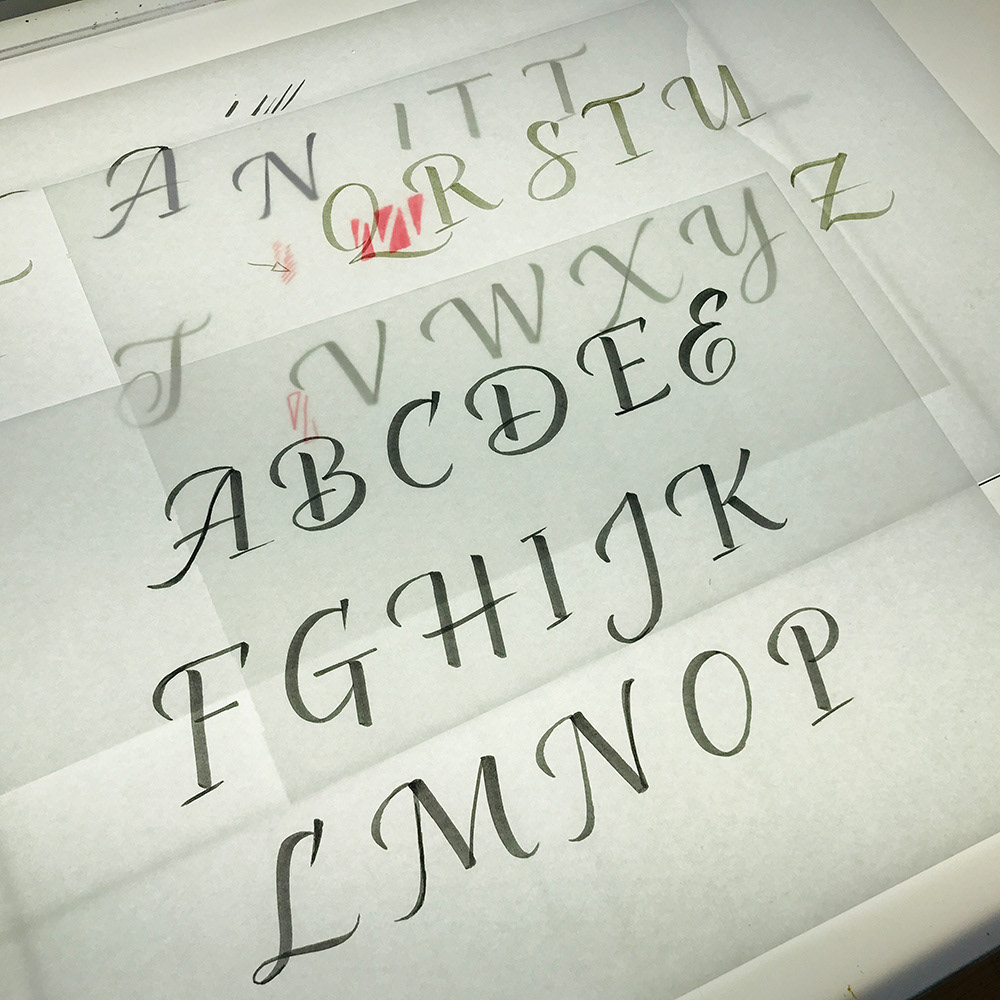 A N I T T
Q R S T U
V W X Y Z
A B C D E E
F G H I J K
L M N O P